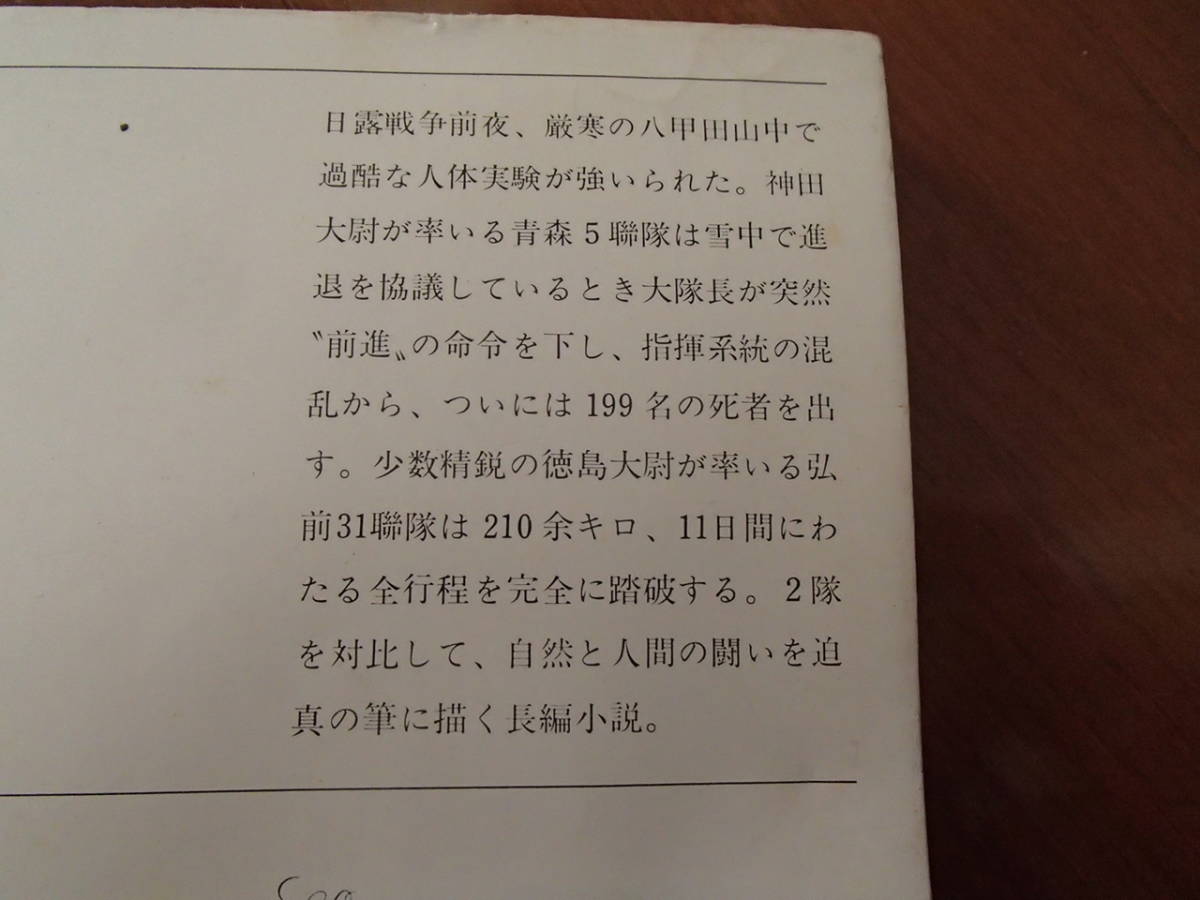 日露戦争前夜、厳寒の八甲田山中で
過酷な人体実験が強いられた。神田
大尉が率いる青森5聯隊は雪中で進
退を協議しているとき大隊長が突然
〝前進〟の命令を下し、指揮系統の混
乱から、ついには199名の死者を出
す。少数精鋭の徳島大尉が率いる弘
前31聯隊は210余キロ、11日間にわ
たる全行程を完全に踏破する。2隊
を対比して、自然と人間の闘いを迫
真の筆に描く長編小説。